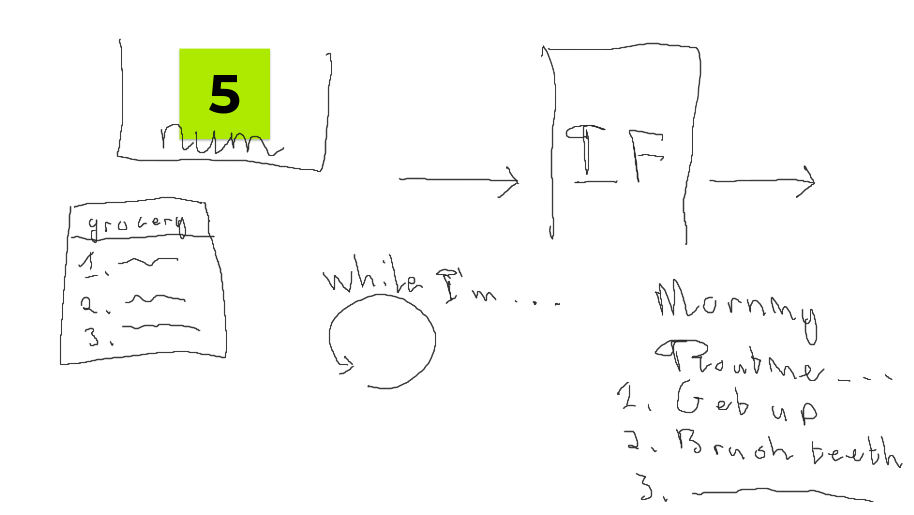 5
num
IF
grocery
1.
2.
3.
while I'm...
Morning
Routine...
1. Get up
2. Brush teeth
3.